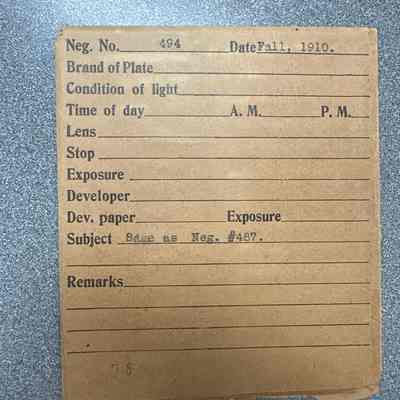 Neg. No. 494 Date Fall, 1910.
Brand of Plate
Condition of light
Time of day A. M. P. M.
Lens
Stop
Exposure
Developer
Dev. paper Exposure
Subject Same as Neg. #487.
Remarks